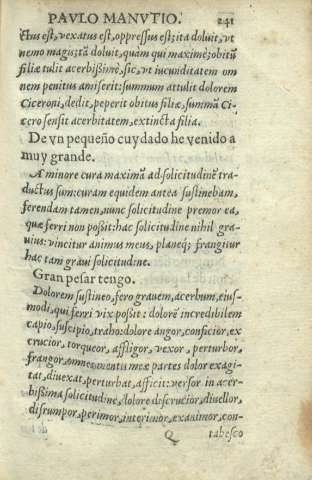 PAVLO MANVTIO. 241
ctus est, vexatus est, oppressus est; ita doluit, vt
nemo magis; tā doluit, quàm qui maximè; obitū
filiæ tulit acerbißimè, sic, vt iucunditatem om
nem penitus amiserit: summum attulit dolorem
Ciceroni, dedit, peperit obitus filiæ, summā Ci-
cero sensit acerbitatem, extincta filia.
De vn pequeño cuydado he venido a
muy grande.
A minore cura maximā ad solicitudinē tra-
ductus sum: curam equidem antea sustinebam,
ferendam tamen, nunc solicitudine premor ea,
quæ ferri non poßit: hac solicitudine nihil gra-
uius: vincitur animus meus, planeq; frangitur
hac tam graui solicitudine.
Gran pesar tengo.
Dolorem sustineo, fero grauem, acerbum, eius-
modi, qui ferri vix poßit: dolorē incredibilem
capio, suscipio, traho: dolore angor, conficior, ex
crucior, torqueor, affligor, vexor, perturbor,
frangor, omnes mentis meæ partes dolor exagi-
tat, diuexat, perturbat, afficit: versor in acer-
bißima solicitudine, dolore discrucior, diuellor,
disrumpor, perimor, interimor, exanimor, con-
Q tabesco